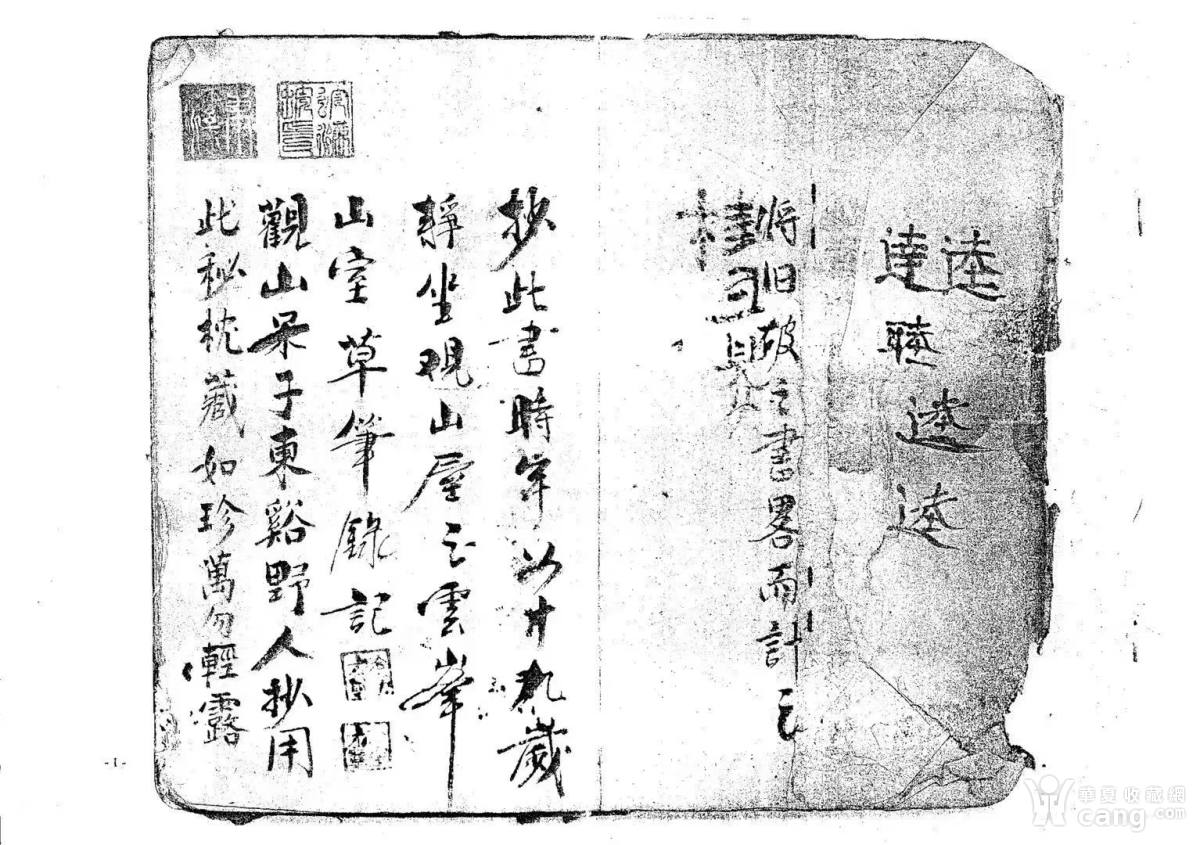 逵
将旧破之書畧而計之
抄此書時年以廿九歲
靜坐观山屋之雲峯
山室草筆錄記
觀山呆子東谿野人抄用
此秘枕藏如珍萬勿輕露
-1-
華夏收藏網
cang.com